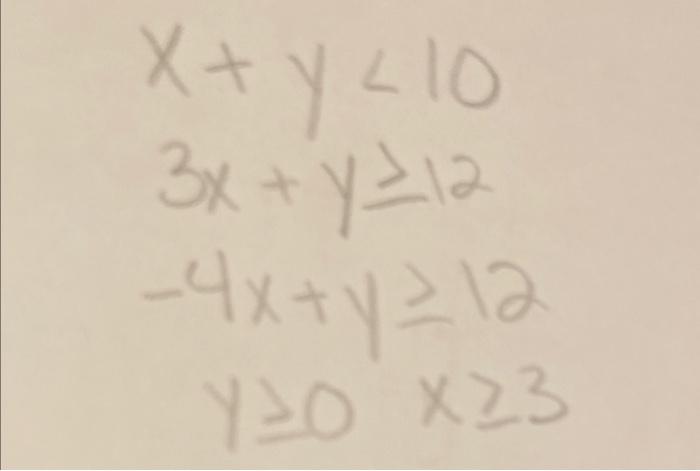 x + y < 10
3x + y ≥ 12
-4x + y ≥ 12
y ≥ 0 x ≥ 3